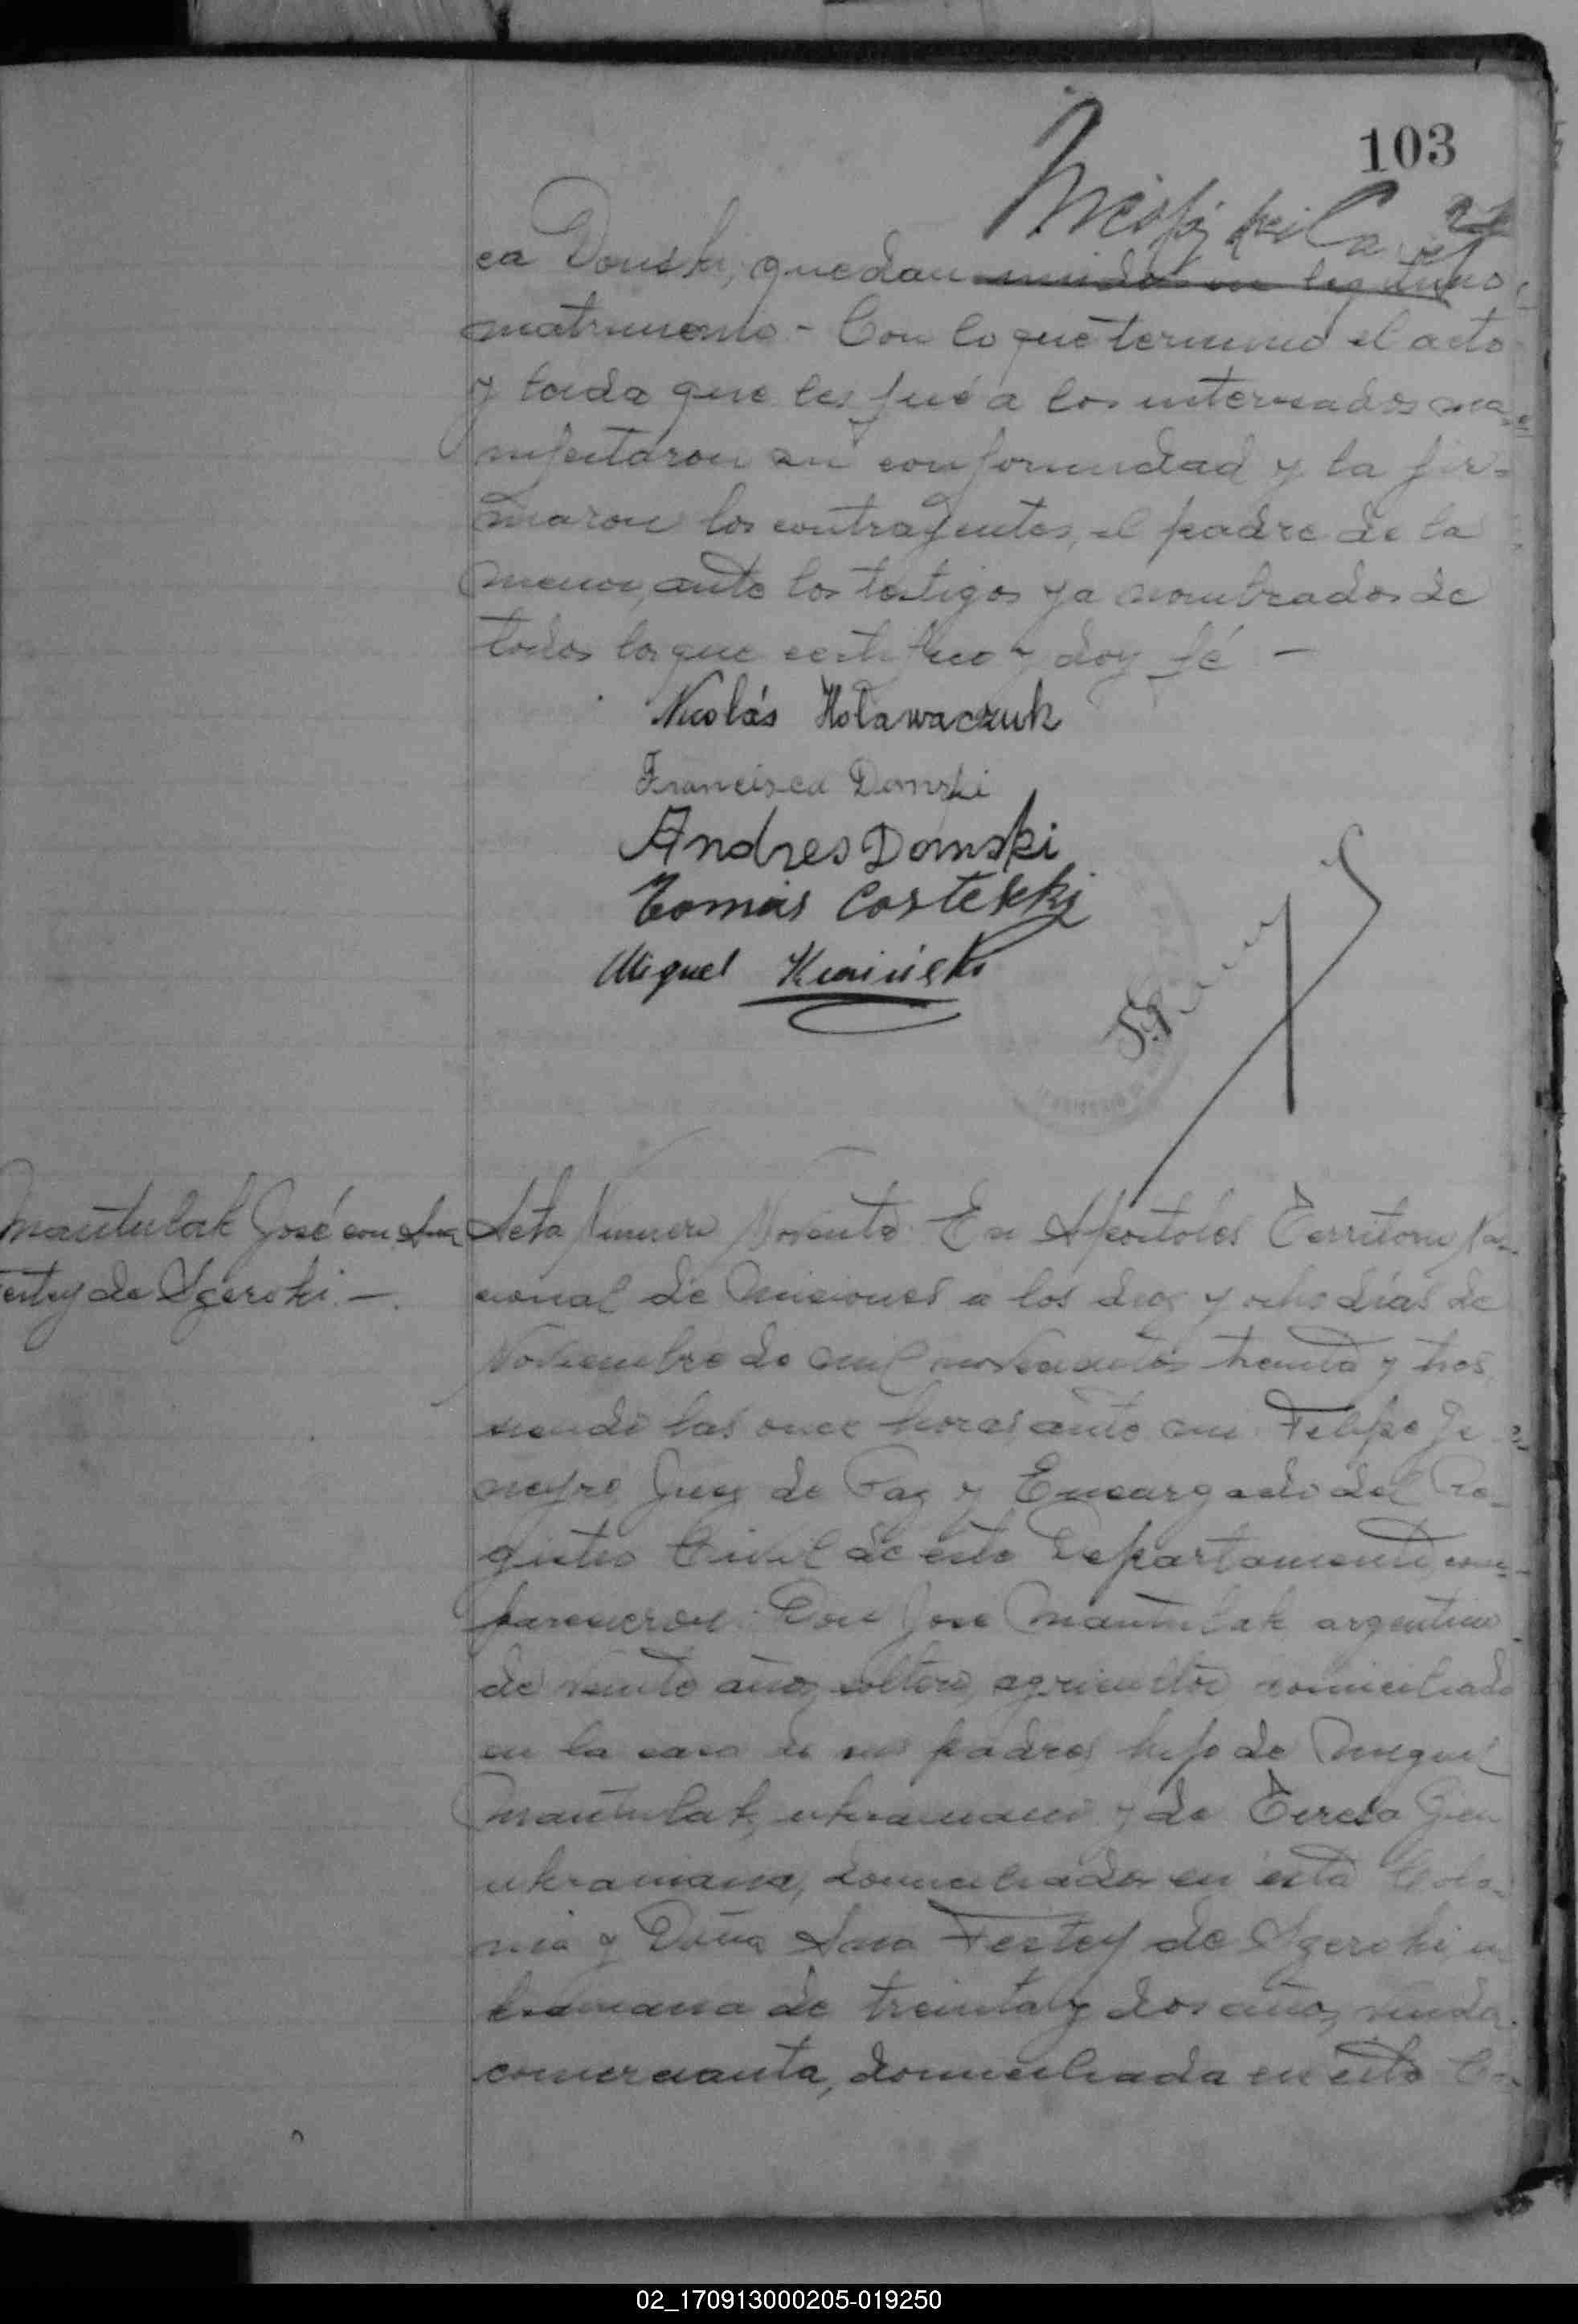 103
ca Domski, quedan unidos en legitimo
matrimonio - Con lo que termino el acto
y leida que les fué a los interesados ma-
nifestaron su conformidad y la fir-
maron los contrayentes, el padre de la
menor, ante los testigos ya nombrados de
todos los que certifico y doy fé -
Nicolás Holawaczuk
Francisca Domski
Andres Domski
Tomás
Miguel
Mantulak José con Ana
de Sgeroki. -
Acta Número Noventa. En Apóstoles Territorio Na-
cional de Misiones a los diez y ocho días de
Noviembre de mil novecientos treinta y tres
siendo las once horas ante mi Felipe Je-
neyro Juez de Paz y Encargado del Re-
gistro Civil de este Departamento, com-
parecieron: Don José Mantulak argentino
de veinte años, soltero, agricultor domiciliado
en la casa de sus padres, hijo de Miguel
Mantulak, ukraniano y de Teresa
ukraniana, domiciliados en esta Colo-
nia y Doña Ana Festey de Sgeroki, u-
kraniana de treinta y dos años, viuda
comercianta, domiciliada en esta Co-
02_170913000205-019250